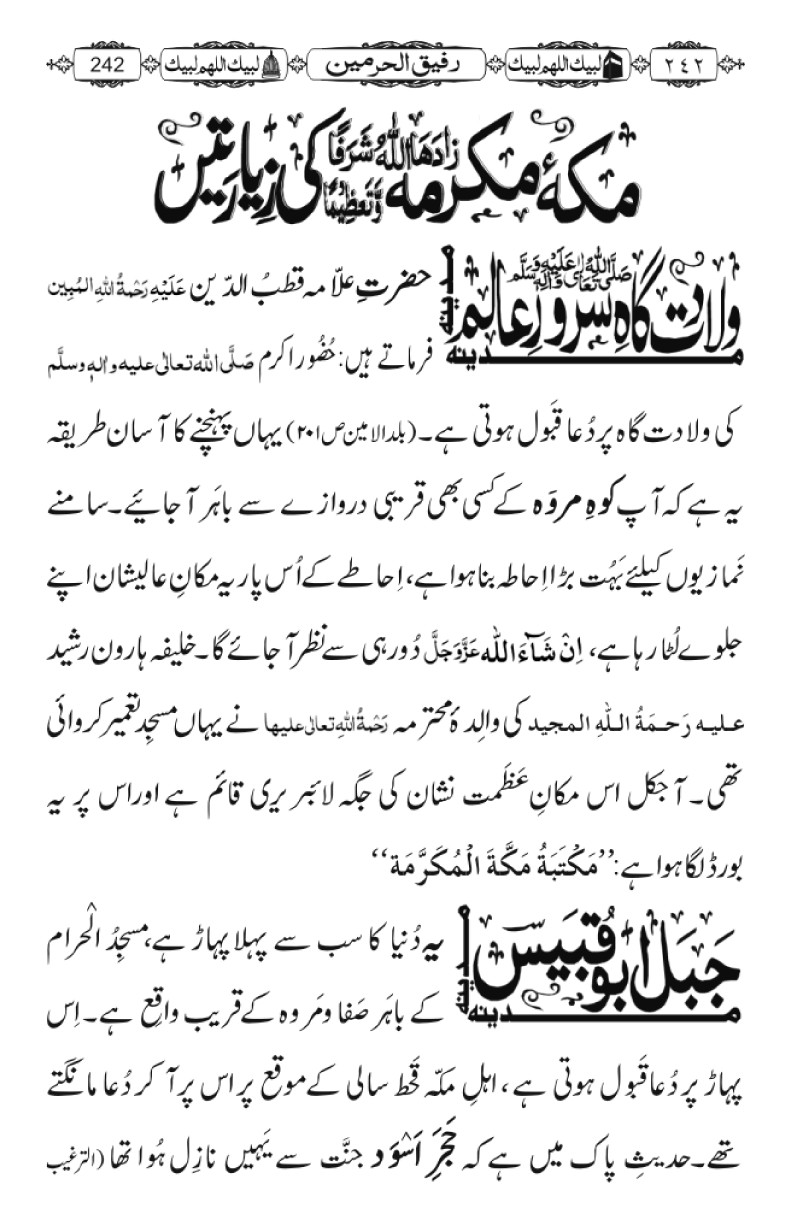 ٢٤٢ لبیک اللھم لبیک رفیق الحرمین لبیک اللھم لبیک 242
مکۂ مکرمہ زَادَھَا اللّٰہُ شَرَفًا وَّتَعْظِیْمًا کی زِیارتیں
ولادت گاہِ سرورِ عالم صَلَّی اللّٰہُ تَعَالٰی عَلَیْہِ وَاٰلِہٖ وَسَلَّم حضرتِ علّامہ قطبُ الدّین عَلَیْہِ رَحْمَۃُ اللّٰہِ المُبِین
مدینہ مدینہ فرماتے ہیں: حُضُورِ اکرم صَلَّی اللّٰہ تعالٰی علیہ واٰلہٖ وسلَّم
کی ولادت گاہ پر دُعا قَبول ہوتی ہے۔ (بلد الامین ص۲۰۱) یہاں پہنچنے کا آسان طریقہ
یہ ہے کہ آپ کوہِ مروہ کے کسی بھی قریبی دروازے سے باہَر آ جائیے۔ سامنے
نَمازیوں کیلئے بَہُت بڑا اِحاطہ بنا ہوا ہے، اِحاطے کے اُس پار یہ مکانِ عالیشان اپنے
جلوے لُٹا رہا ہے، اِنْ شَآءَ اللّٰہ عَزَّوَجَلَّ دُور ہی سے نظر آ جائے گا۔ خلیفہ ہارون رشید
علیہ رَحمَۃُ اللّٰہِ المجید کی والِدۂ محترمہ رَحْمَۃُ اللّٰہِ تعالٰی علیہا نے یہاں مسجِد تعمیر کروائی
تھی۔ آجکل اس مکانِ عَظَمت نشان کی جگہ لائبریری قائم ہے اور اس پر یہ
بورڈ لگا ہوا ہے: ’’مَکْتَبَۃُ مَکَّۃَ الْمُکَرَّمَۃ‘‘
جَبَلِ ابُو قُبَیس یہ دُنیا کا سب سے پہلا پہاڑ ہے، مسجِدُ الْحرام
مدینہ مدینہ کے باہَر صَفا ومَروہ کے قریب واقِع ہے۔ اِس
پہاڑ پر دُعا قَبول ہوتی ہے، اہلِ مکّہ قحط سالی کے موقع پر اس پر آ کر دُعا مانگتے
تھے۔ حدیثِ پاک میں ہے کہ حَجَرِ اَسْوَد جنَّت سے یَہیں نازِل ہُوا تھا (الترغیب